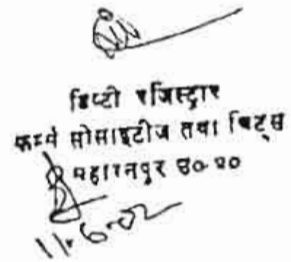 डिप्टी रजिस्ट्रार
फर्म्स सोसाइटीज तथा चिट्स
सहारनपुर उ० प्र०
11-6-02